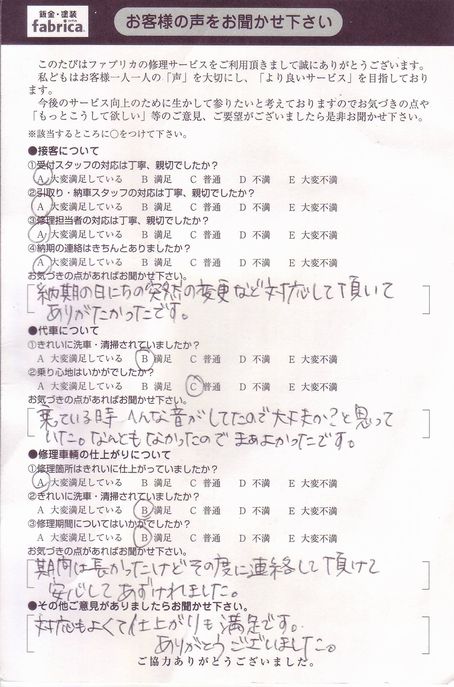 鈑金・塗装
fabrica.
お客様の声をお聞かせ下さい
このたびはファブリカの修理サービスをご利用頂きまして誠にありがとうございます。
私どもはお客様一人一人の「声」を大切にし、「より良いサービス」を目指しており
ます。
今後のサービス向上のために生かして参りたいと考えておりますのでお気づきの点や
「もっとこうして欲しい」等のご意見、ご要望がございましたら是非お聞かせ下さい。
※該当するところに○をつけて下さい。
●接客について
①受付スタッフの対応は丁寧、親切でしたか?
A 大変満足している B 満足 C 普通 D 不満 E 大変不満
②引取り・納車スタッフの対応は丁寧、親切でしたか?
A 大変満足している B 満足 C 普通 D 不満 E 大変不満
③修理担当者の対応は丁寧、親切でしたか?
A 大変満足している B 満足 C 普通 D 不満 E 大変不満
④納期の連絡はきちんとありましたか?
A 大変満足している B 満足 C 普通 D 不満 E 大変不満
お気づきの点があればお聞かせ下さい。
納期の日にちの突然の変更など対応して頂いて
ありがたかったです。
●代車について
①きれいに洗車・清掃されていましたか?
A 大変満足している B 満足 C 普通 D 不満 E 大変不満
②乗り心地はいかがでしたか?
A 大変満足している B 満足 C 普通 D 不満 E 大変不満
お気づきの点があればお聞かせ下さい。
乗っている時 へんな音がしてたので大丈夫か?と思って
いた。なんともなかったので まぁよかったです。
●修理車輌の仕上がりについて
①修理箇所はきれいに仕上がっていましたか?
A 大変満足している B 満足 C 普通 D 不満 E 大変不満
②きれいに洗車・清掃されていましたか?
A 大変満足している B 満足 C 普通 D 不満 E 大変不満
③修理期間についてはいかがでしたか?
A 大変満足している B 満足 C 普通 D 不満 E 大変不満
お気づきの点があればお聞かせ下さい。
期間は長かったけどその度に連絡して頂けて
安心してあずけれました。
●その他ご意見がありましたらお聞かせ下さい。
対応もよくて仕上がりも満足です。
ありがとうございました。
ご協力ありがとうございました。